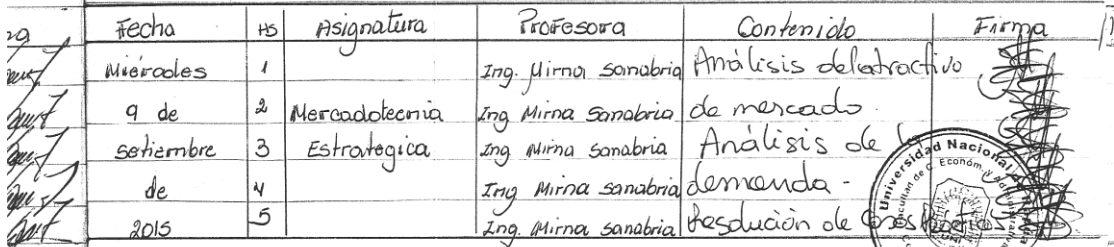 Fecha HS Asignatura Profesora Contenido Firma
Miércoles 1 Ing. Mirna Sanabria Análisis del atractivo
9 de 2 Mercadotecnia Ing Mirna Sanabria de mercado.
Setiembre 3 Estrategica Ing Mirna Sanabria Análisis de la
de 4 Ing Mirna Sanabria demanda -
2015 5 Ing. Mirna Sanabria Resolución de
Universidad Nacional de
Facultad de C. Económ. y Administrativas